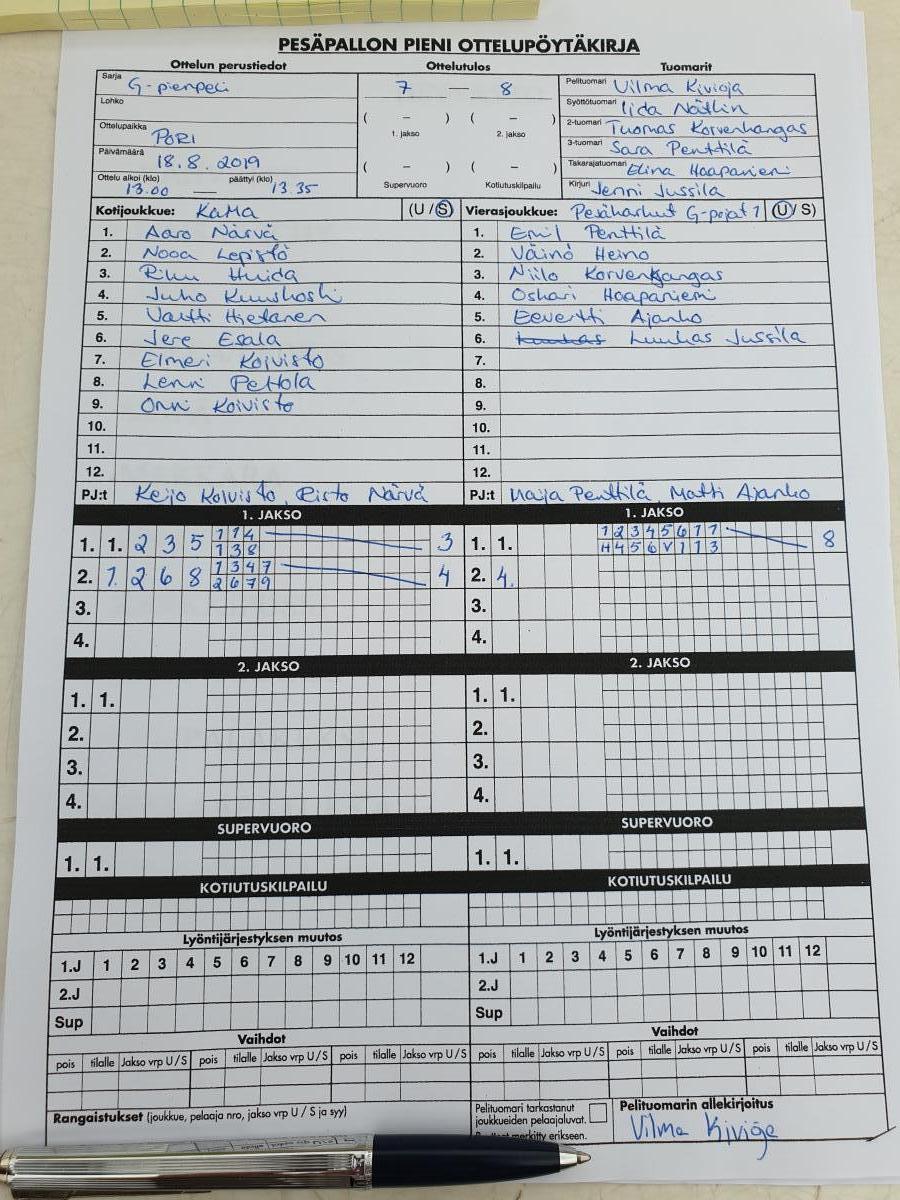 PESÄPALLON PIENI OTTELUPÖYTÄKIRJA
Ottelun perustiedot Ottelutulos Tuomarit
Sarja G-pienpeli
Lohko
Ottelupaikka PORI
Päivämäärä 18.8.2019
Ottelu alkoi (klo) 13.00 — päättyi (klo) 13.35
7 — 8
( – ) ( – )
1. jakso 2. jakso
( – ) ( – )
Supervuoro Kotiutuskilpailu
Pelituomari Vilma Kivioja
Syöttötuomari Iida Nätkin
2-tuomari Tuomas Korvenkangas
3-tuomari Sara Penttilä
Takarajatuomari Elina Haapaniemi
Kirjuri Jenni Jussila
Kotijoukkue: KaMa (U/S) Vierasjoukkue: Pesäkarhut G-pojat 1 (U/S)
1. Aaro Närvä 1. Emil Penttilä
2. Nooa Lepistö 2. Väinö Heino
3. Riku Huida 3. Niilo Korvenkangas
4. Juho Kuuskoski 4. Oskari Haapaniemi
5. Valtti Hietanen 5. Eevertti Ajanko
6. Jere Esala 6. Luukas Jussila
7. Elmeri Koivisto 7.
8. Lenni Peltola 8.
9. Onni Koivisto 9.
10. 10.
11. 11.
12. 12.
PJ:t Keijo Koivisto, Risto Närvä PJ:t Maija Penttilä, Matti Ajanko
1. JAKSO 1. JAKSO
1. 1. 2 3 5 1 1 4 3 1. 1. 1 2 3 4 5 6 1 1 8
1 3 8 H 4 5 6 V 1 1 3
2. 1. 2 6 8 1 3 4 7 4 2. 4.
2 6 7 9
3. 3.
4. 4.
2. JAKSO 2. JAKSO
1. 1. 1. 1.
2. 2.
3. 3.
4. 4.
SUPERVUORO SUPERVUORO
1. 1. 1. 1.
KOTIUTUSKILPAILU KOTIUTUSKILPAILU
Lyöntijärjestyksen muutos Lyöntijärjestyksen muutos
1.J 1 2 3 4 5 6 7 8 9 10 11 12 1.J 1 2 3 4 5 6 7 8 9 10 11 12
2.J 2.J
Sup Sup
Vaihdot Vaihdot
pois tilalle Jakso vrp U/S pois tilalle Jakso vrp U/S pois tilalle Jakso vrp U/S pois tilalle Jakso vrp U/S pois tilalle Jakso vrp U/S pois tilalle Jakso vrp U/S
Rangaistukset (joukkue, pelaaja nro, jakso vrp U / S ja syy)
Pelituomari tarkastanut
joukkueiden pelaajaluvat.
merkitty erikseen.
Pelituomarin allekirjoitus
Vilma Kivioja